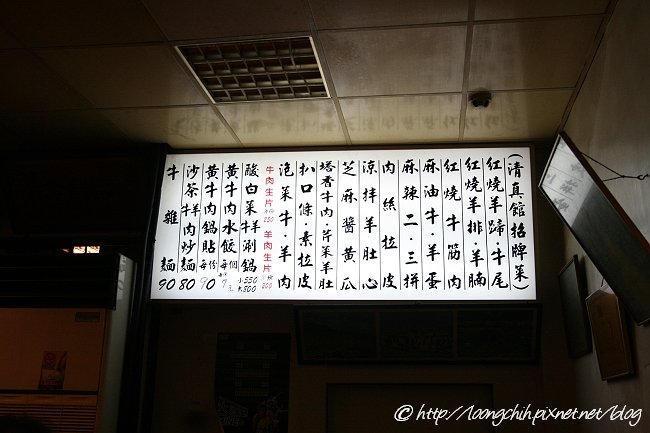 (清真館招牌菜)
紅燒羊蹄·牛尾
紅燒羊排·羊腩
紅燒牛筋肉
麻油牛·羊蛋
麻辣二·三拼
肉絲拉皮
涼拌羊肚心
芝麻醬黃瓜
塔香牛肉·芹菜羊肚
扒口條·素拉皮
泡菜牛·羊肉
牛肉生片 200 羊肉生片 200
酸白菜牛羊涮鍋 小550 大800
黃牛肉水餃每個7元
黃牛肉鍋貼每份90
沙茶牛羊肉炒麵80
牛雜麵90
©http://loongchih.pixnet.net/blog